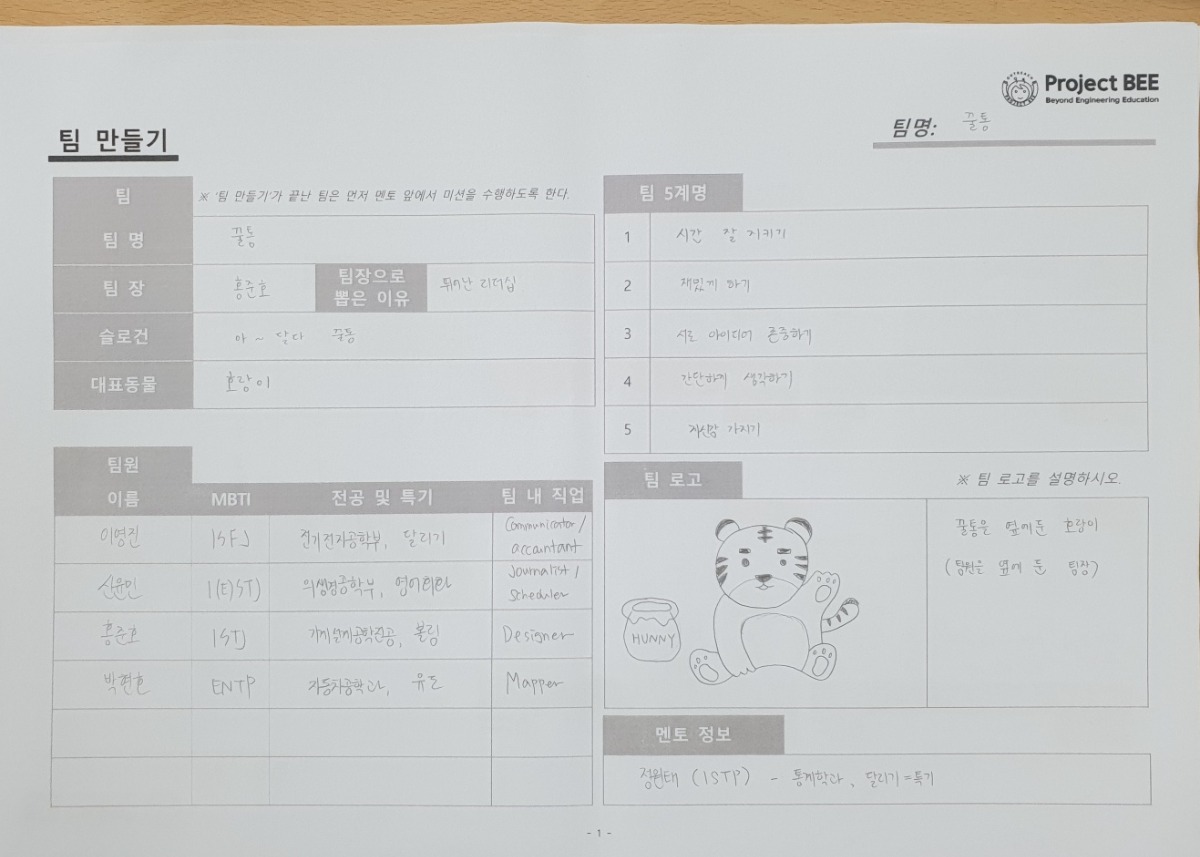 Project BEE
Beyond Engineering Education
팀 만들기
팀명: 꿀통
팀
※ '팀 만들기'가 끝난 팀은 먼저 멘토 앞에서 미션을 수행하도록 한다.
팀 명 꿀통
팀 장 홍준호 팀장으로 뽑은 이유 뛰어난 리더십
슬로건 아 ~ 달다 꿀통
대표동물 호랑이
팀원
이름 MBTI 전공 및 특기 팀 내 직업
이영진 ISFJ 전기전자공학부, 달리기 Communicator / accountant
신윤민 I(E)STJ 의생명공학부, 영어회화 Journalist / Scheduler
홍준호 ISTJ 기계설계공학전공, 볼링 Designer
박현호 ENTP 자동차공학과, 유도 Mapper
팀 5계명
1 시간 잘 지키기
2 재밌게 하기
3 서로 아이디어 존중하기
4 간단하게 생각하기
5 자신감 가지기
팀 로고
※ 팀 로고를 설명하시오.
HUNNY
꿀통을 옆에 둔 호랑이
(팀원을 옆에 둔 팀장)
멘토 정보
정원태 (ISTP) - 통계학과, 달리기=특기
- 1 -